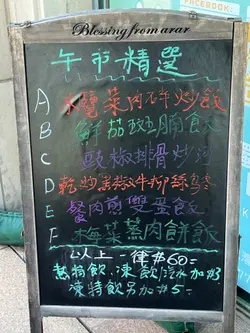 FACEBOOK
Blessing from arar
午市精選
A 木鬚菜肉 炒飯
B 鮮茄斑腩飯
C 豉椒排骨炒河
D 乾炒黑椒牛柳絲烏冬
E 蟹肉煎雙蛋飯
F 梅菜蒸肉餅飯
以上一律#60-
熱特飲、凍飲汽水加#3
凍特飲另加#5-